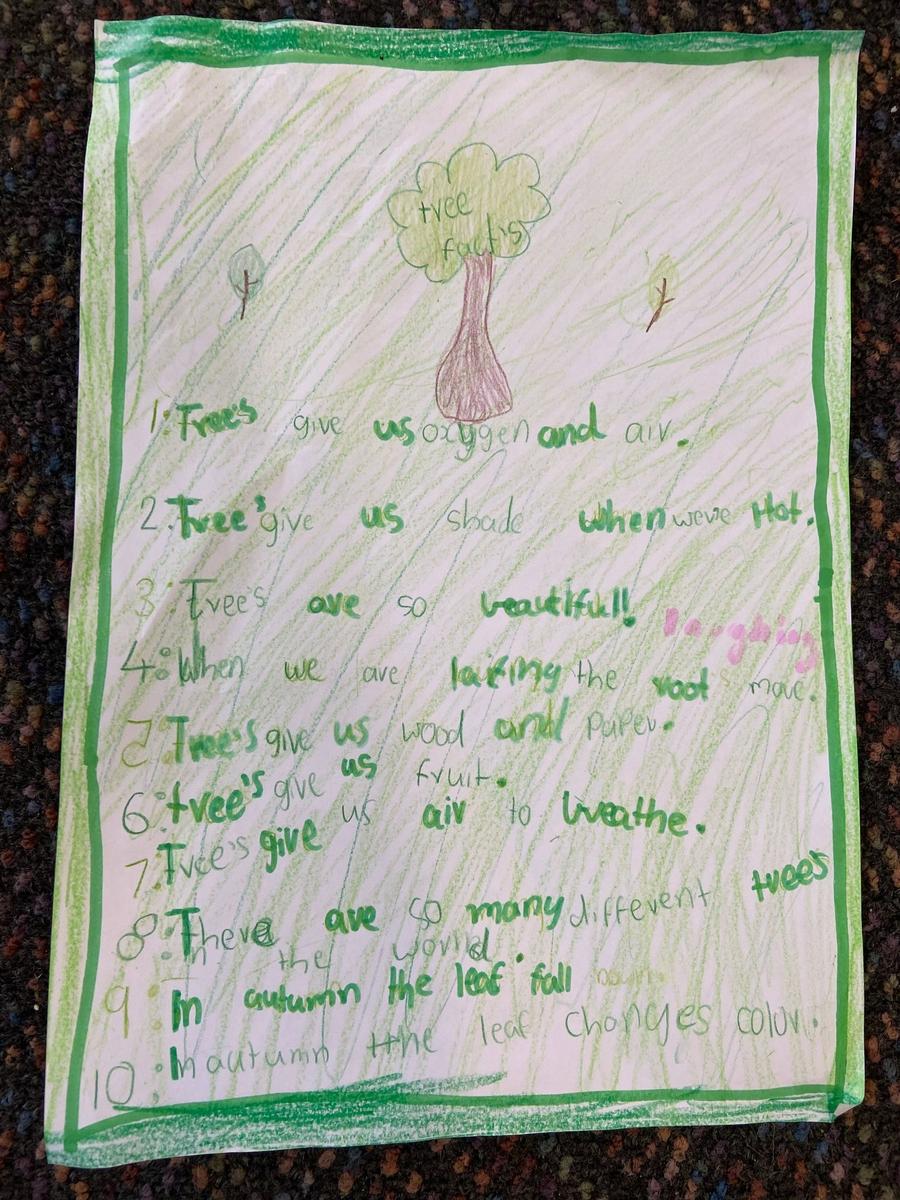 tree
fact's
1: Tree's give us oxygen and air.
2. Tree's give us shade when were Hot.
3: Tree's are so beautifull!
laughing
4: When we are laifing the root s move.
5. Tree's give us wood and paper.
6: tree's give us fruit.
7. Tree's give us air to breathe.
8: There are so many different trees
In the world.
9: In autumn the leaf fall down
10: In autumn the leaf changes color.